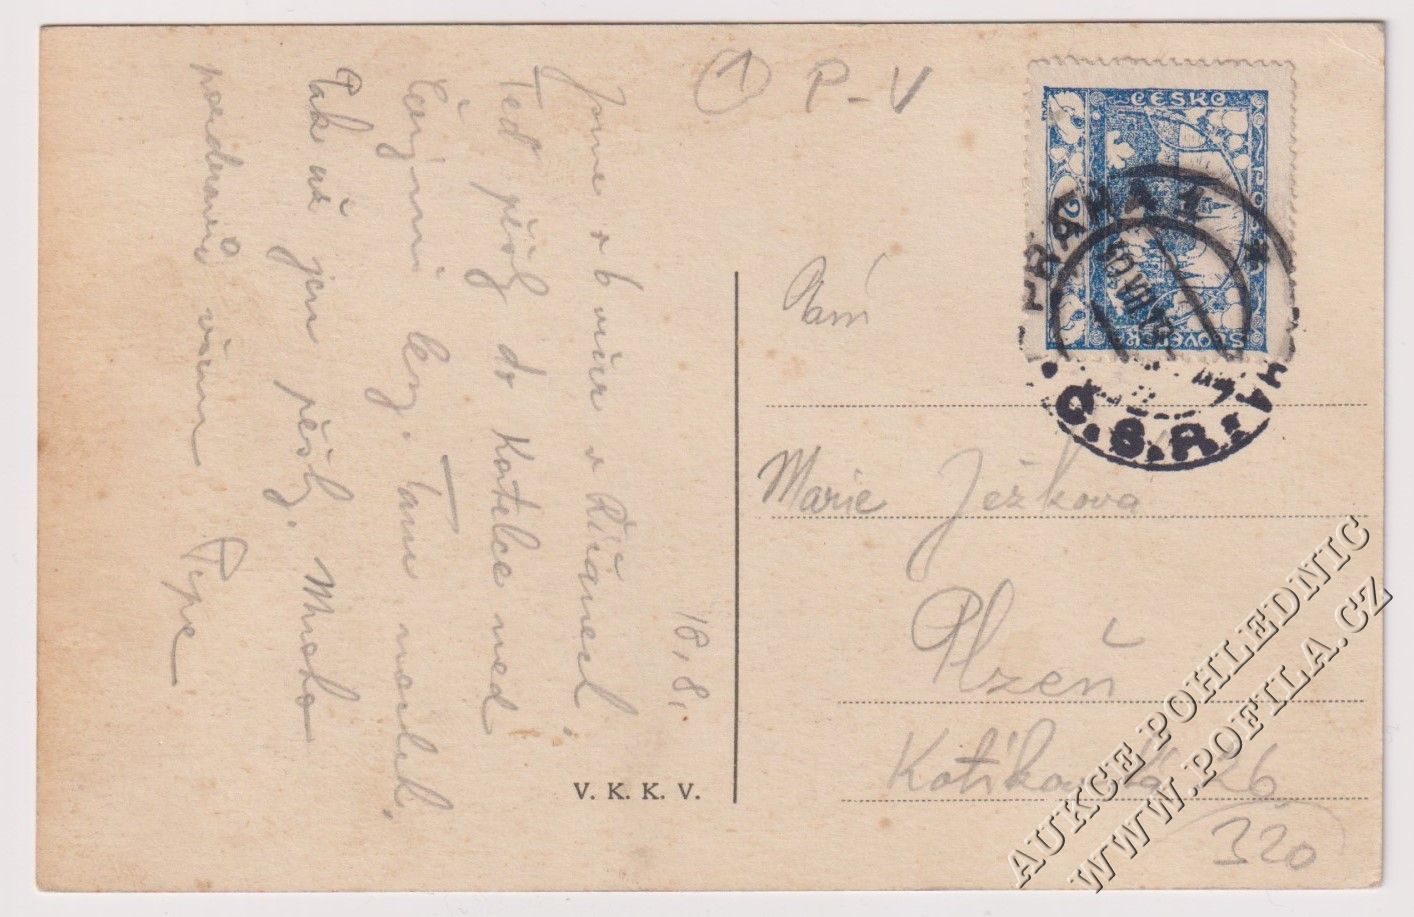 18. 8.
Jsme v b v Říčanech.
Teď pěšky do Kostelce nad
Černými lesy. Tam nocleh.
Tak už jen pěšky. Mnoho
pozdravů všem Pepa
V. K. K. V.
1 P-V
ČESKO
SLOVENSKÁ
PRAHA 1
Č.S.R.
Paní
Marie Ježková
Plzeň
Kotíkovská 26.
320
AUKCE POHLEDNIC
WWW.POFILA.CZ